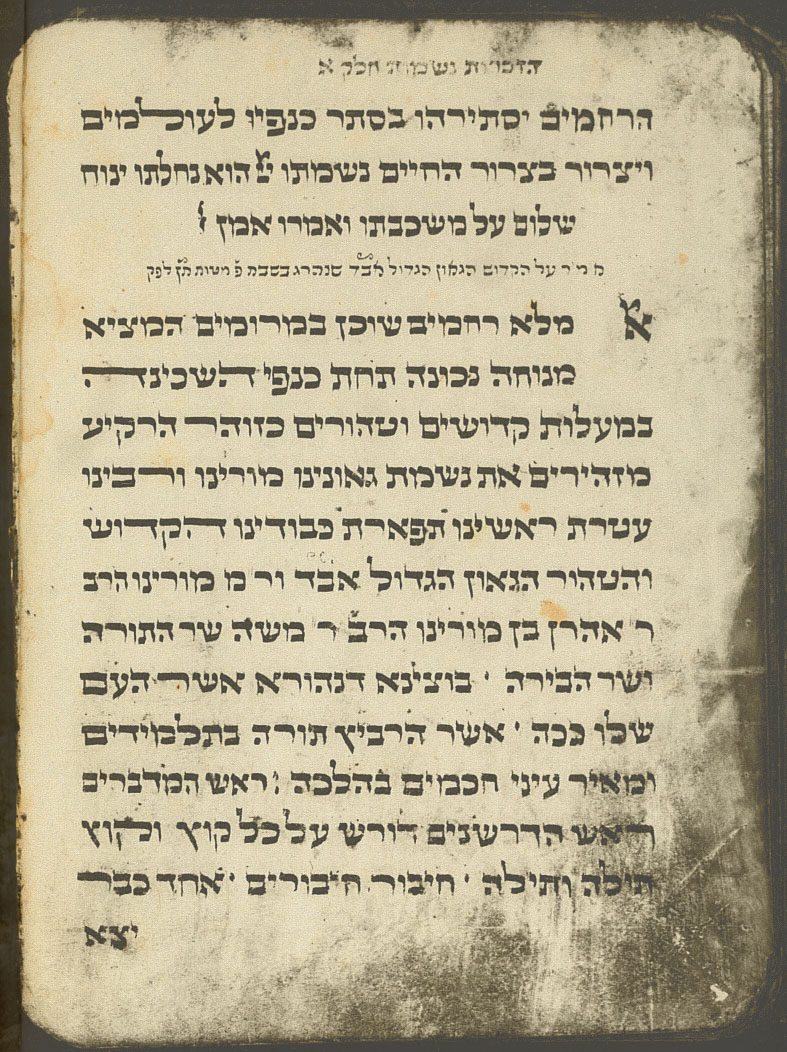 הזכרות נשמות חלק א
הרחמים יסתירהו בסתר כנפיו לעולמים
ויצרור בצרור החיים נשמתו ע הוא נחלתו ינוח
שלום על משכבתו ואמרו אמן
א מ ר על הקדוש הגאון הגדול אבד שנהרג בשבת פ מטות לפק
א מלא רחמים שוכן במרומים המציא
מנוחה נכונה תחת כנפי השכינה
במעלות קדושים וטהורים כזוהר הרקיע
מזהירים את נשמת גאונינו מורינו ורבינו
עטרת ראשינו תפארת כבודינו הקדוש
והטהור הגאון הגדול אבד ור מ מורינו הרב
ר אהרן בן מורינו הרב ר משה שר התורה
ושר הבירה ' בוצינא דנהורא אשר העם
שלו ככה ' אשר הרביץ תורה בתלמידים
ומאיר עיני חכמים בהלכה ראש המדברים
ראש הדרשנים דורש על כל קוץ וקוץ
תולה ותילה ' חיבור חיבורים ' אחד כבר
יצא